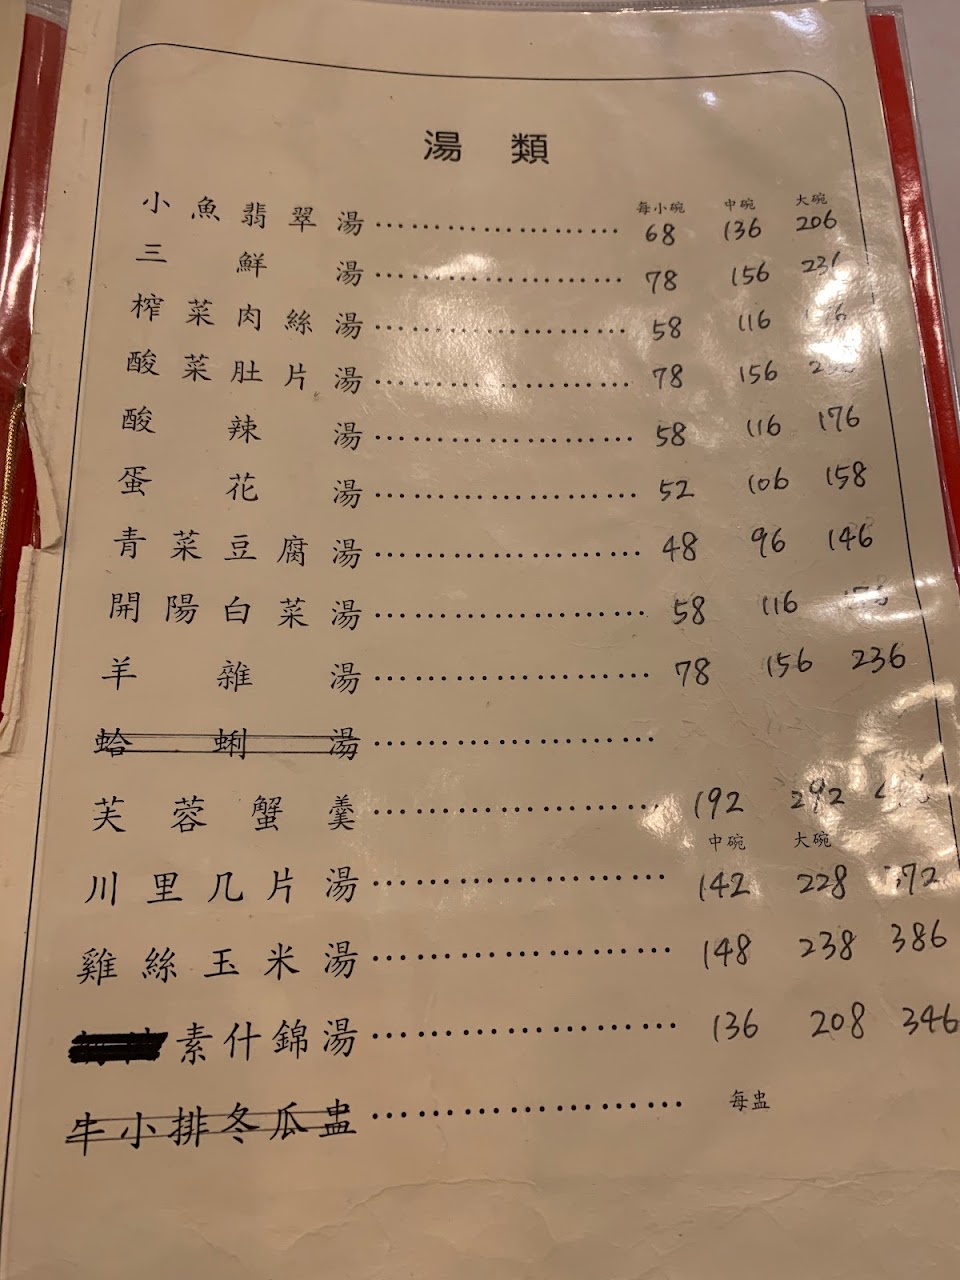 湯類
每小碗 中碗 大碗
小魚翡翠湯 68 136 206
三鮮湯 78 156 236
榨菜肉絲湯 58 116
酸菜肚片湯 78 156
酸辣湯 58 116 176
蛋花湯 52 106 158
青菜豆腐湯 48 96 146
開陽白菜湯 58 116
羊雜湯 78 156 236
蛤蜊湯
芙蓉蟹羹 192 292
中碗 大碗
川里几片湯 142 228 372
雞絲玉米湯 148 238 386
素什錦湯 136 208 346
牛小排冬瓜盅 每盅